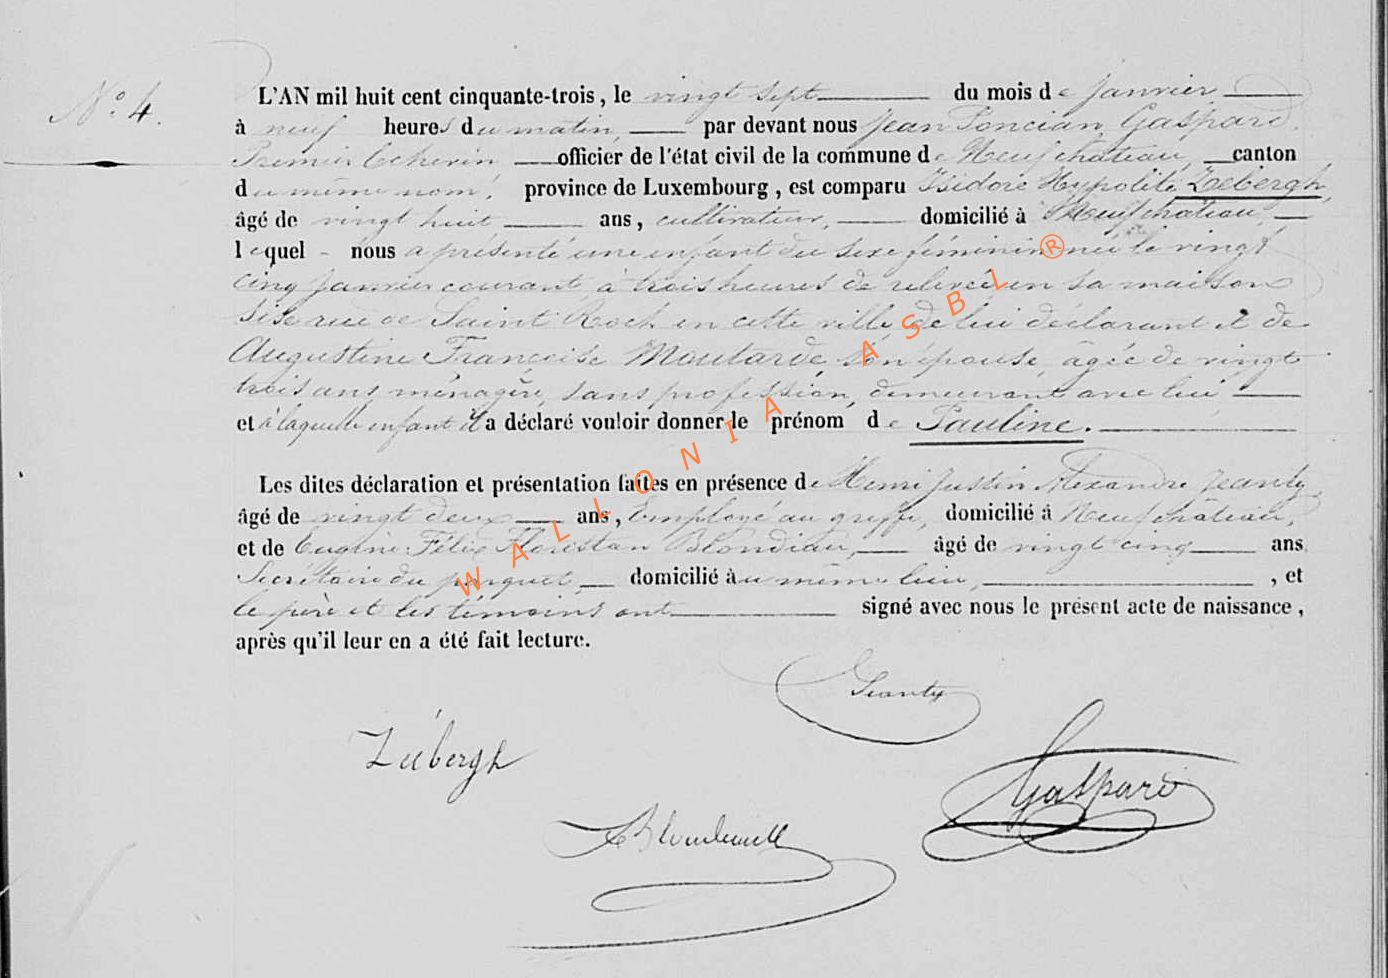 N° 4.
L'AN mil huit cent cinquante-trois, le vingt sept du mois de janvier
à neuf heures du matin, par devant nous Jean Poncian Gaspard.
Premier Echevin officier de l'état civil de la commune de Neufchâteau, canton
du même nom, province de Luxembourg, est comparu Isidore Hypolite Zebergh,
âgé de vingt huit ans, cultivateur, domicilié à Neufchâteau,
lequel nous a présenté une enfant du sexe féminin née le vingt
cinq janvier courant à trois heures de relevée en sa maison
sise rue de Saint Roch en cette ville, de lui déclarant et de
Augustine Françoise Moutarde, son épouse, âgée de vingt
trois ans ménagère, sans profession, demeurant avec lui
et à laquelle enfant il a déclaré vouloir donner le prénom de Pauline.
Les dites déclaration et présentation faites en présence de Henri Justin Alexandre Jeanty
âgé de vingt deux ans, Employé au greffe, domicilié à Neufchâteau,
et de Eugène Félix Floristan Blondiau, âgé de vingt cinq ans
Secrétaire du parquet, domicilié au même lieu, , et
le père et les témoins ont signé avec nous le présent acte de naissance,
après qu'il leur en a été fait lecture.
Jeanty
Zébergh
Gaspard
WALLONIA ASBL ®